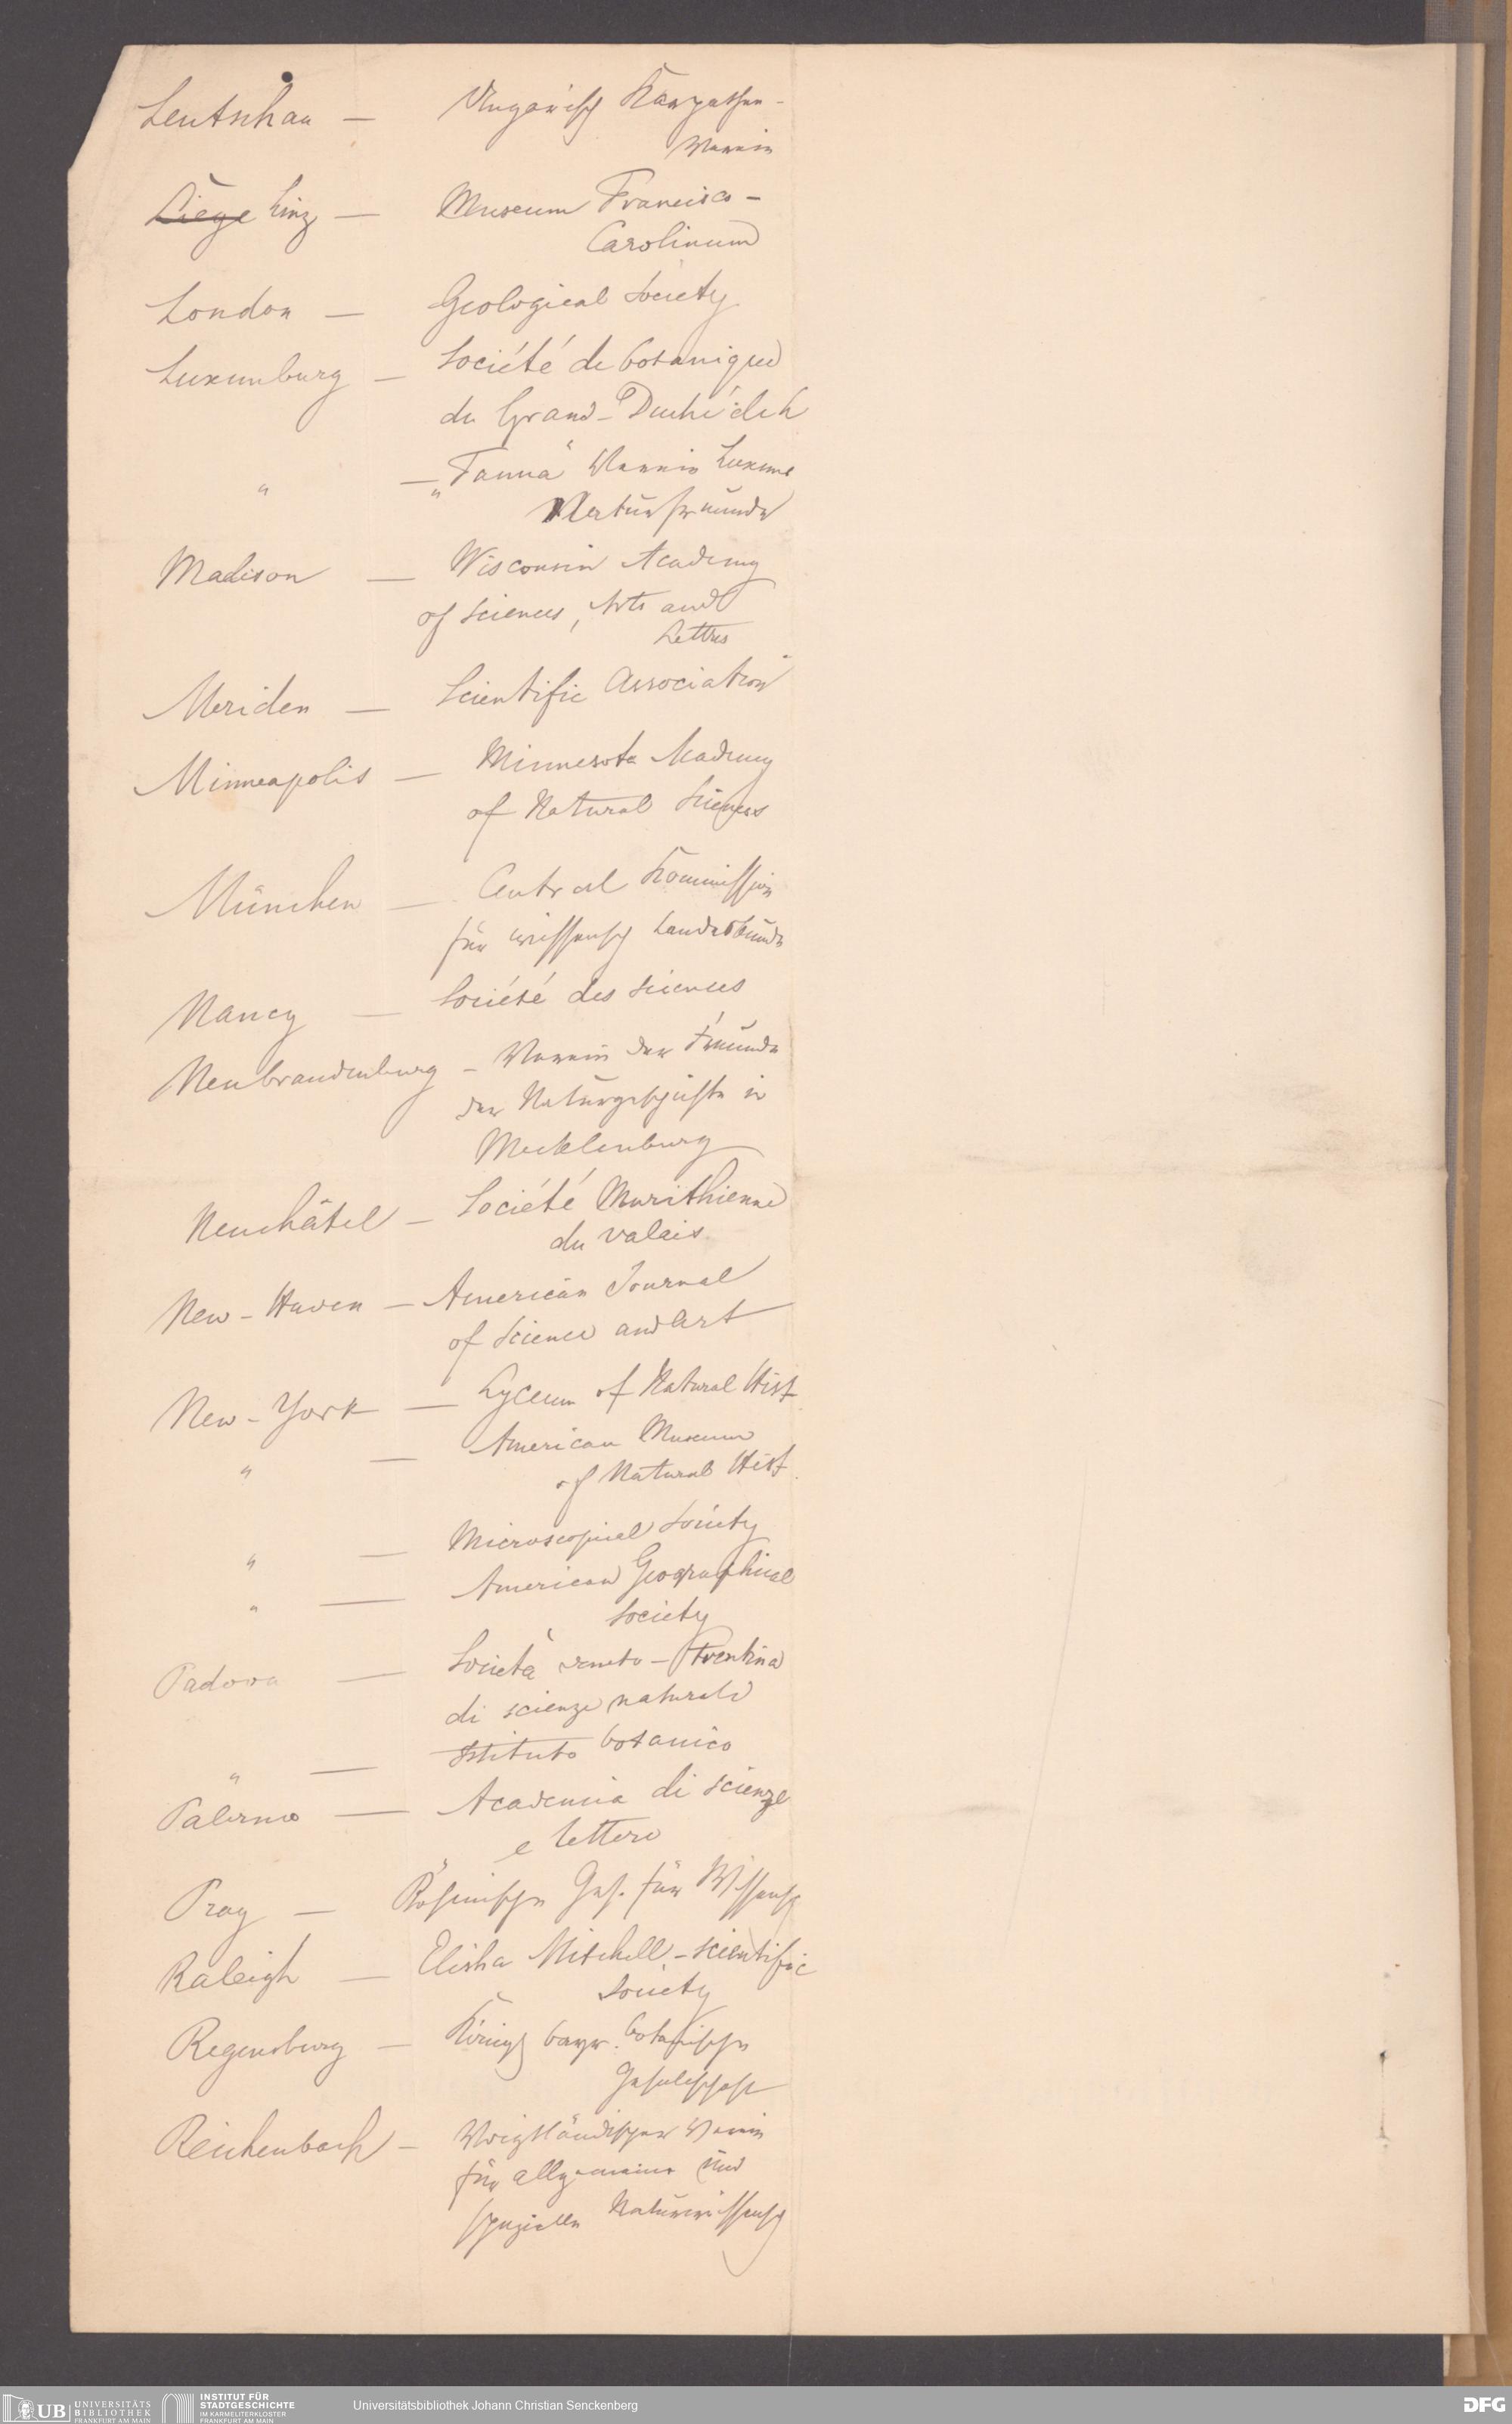 Leutschau — Ungarisch Karpathen-
Verein
Liège Linz — Museum Francisco-
Carolinum
London — Geological Society
Luxemburg — Société de botanique
du Grand-Duché de L
" — „Fauna“ Verein Luxemb
Naturfreunde
Madison — Wisconsin Academy
of Sciences, Arts and
Lettres
Meriden — Scientific Association
Minneapolis — Minnesota Academy
of Natural Sciences
München — Central Kommission
für wissensch Landeskunde
Nancy — Société des Sciences
Neubrandenburg — Verein der Freunde
der Naturgeschichte in
Mecklenburg
Neuchâtel — Société Murithienne
du Valais
New-Haven — American Journal
of Science and Art
New-York — Lyceum of Natural Hist.
" — American Museum
of Natural Hist.
" — Microscopical Society
" — American Geographical
Society
Padova — Società veneto-trentina
di scienze naturali
" — Istituto botanico
Palermo — Academia di Scienze
e lettere
Prag — Böhmische Ges. für Wissensch
Raleigh — Elisha Mitchell-scientific
Society
Regensburg — Königl bayr. botanische
Gesellschaft
Reichenbach — Voigtländischer Verein
für allgemeine und
spezielle Naturwissensch
UB UNIVERSITÄTS
BIBLIOTHEK
FRANKFURT AM MAIN
INSTITUT FÜR
STADTGESCHICHTE
IM KARMELITERKLOSTER
FRANKFURT AM MAIN
Universitätsbibliothek Johann Christian Senckenberg
DFG